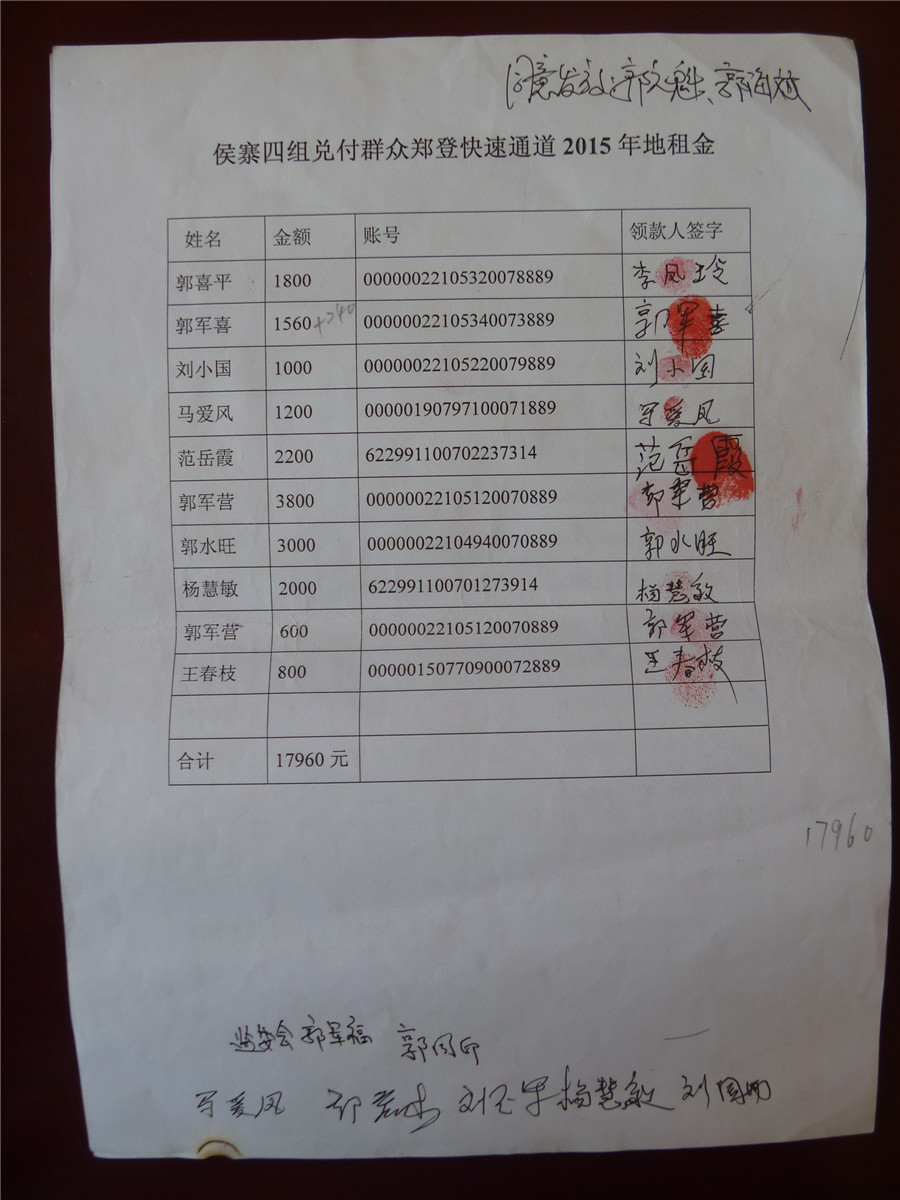 同意发放:郭文魁、郭海欣
侯寨四组兑付群众郑登快速通道 2015 年地租金
姓名 金额 账号 领款人签字
郭喜平 1800 00000022105320078889 李凤玲
郭军喜 1560+240 00000022105340073889 郭军喜
刘小国 1000 00000022105220079889 刘小国
马爱风 1200 00000190797100071889 马爱凤
范岳霞 2200 622991100702237314 范岳霞
郭军营 3800 00000022105120070889 郭军营
郭水旺 3000 00000022104940070889 郭水旺
杨慧敏 2000 622991100701273914 杨慧敏
郭军营 600 00000022105120070889 郭军营
王春枝 800 00000150770900072889 王春枝
合计 17960 元
17960
监委会 郭军福 郭同印
马爱凤 杨慧敏 刘国